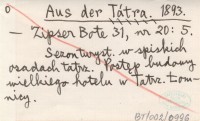 0 Aus der Tátra. 1893.
– Zipser Bote 31, nr 20: 5.
Sezon turyst. w spiskich
osadach tatrz. Postęp budowy
wielkiego hotelu w Tatrz. Łom-
nicy.
BT/002/0996